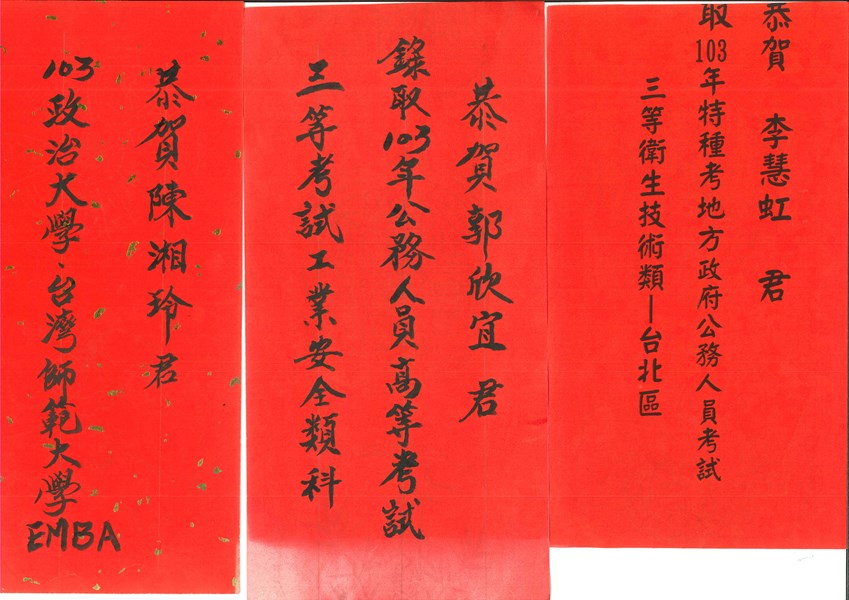 恭賀 李慧虹 君
取103年特種考地方政府公務人員考試
三等衛生技術類－台北區
恭賀郭欣宜君
錄取103年公務人員高等考試
三等考試工業安全類科
恭賀陳湘玲君
103政治大學、台灣師範大學EMBA